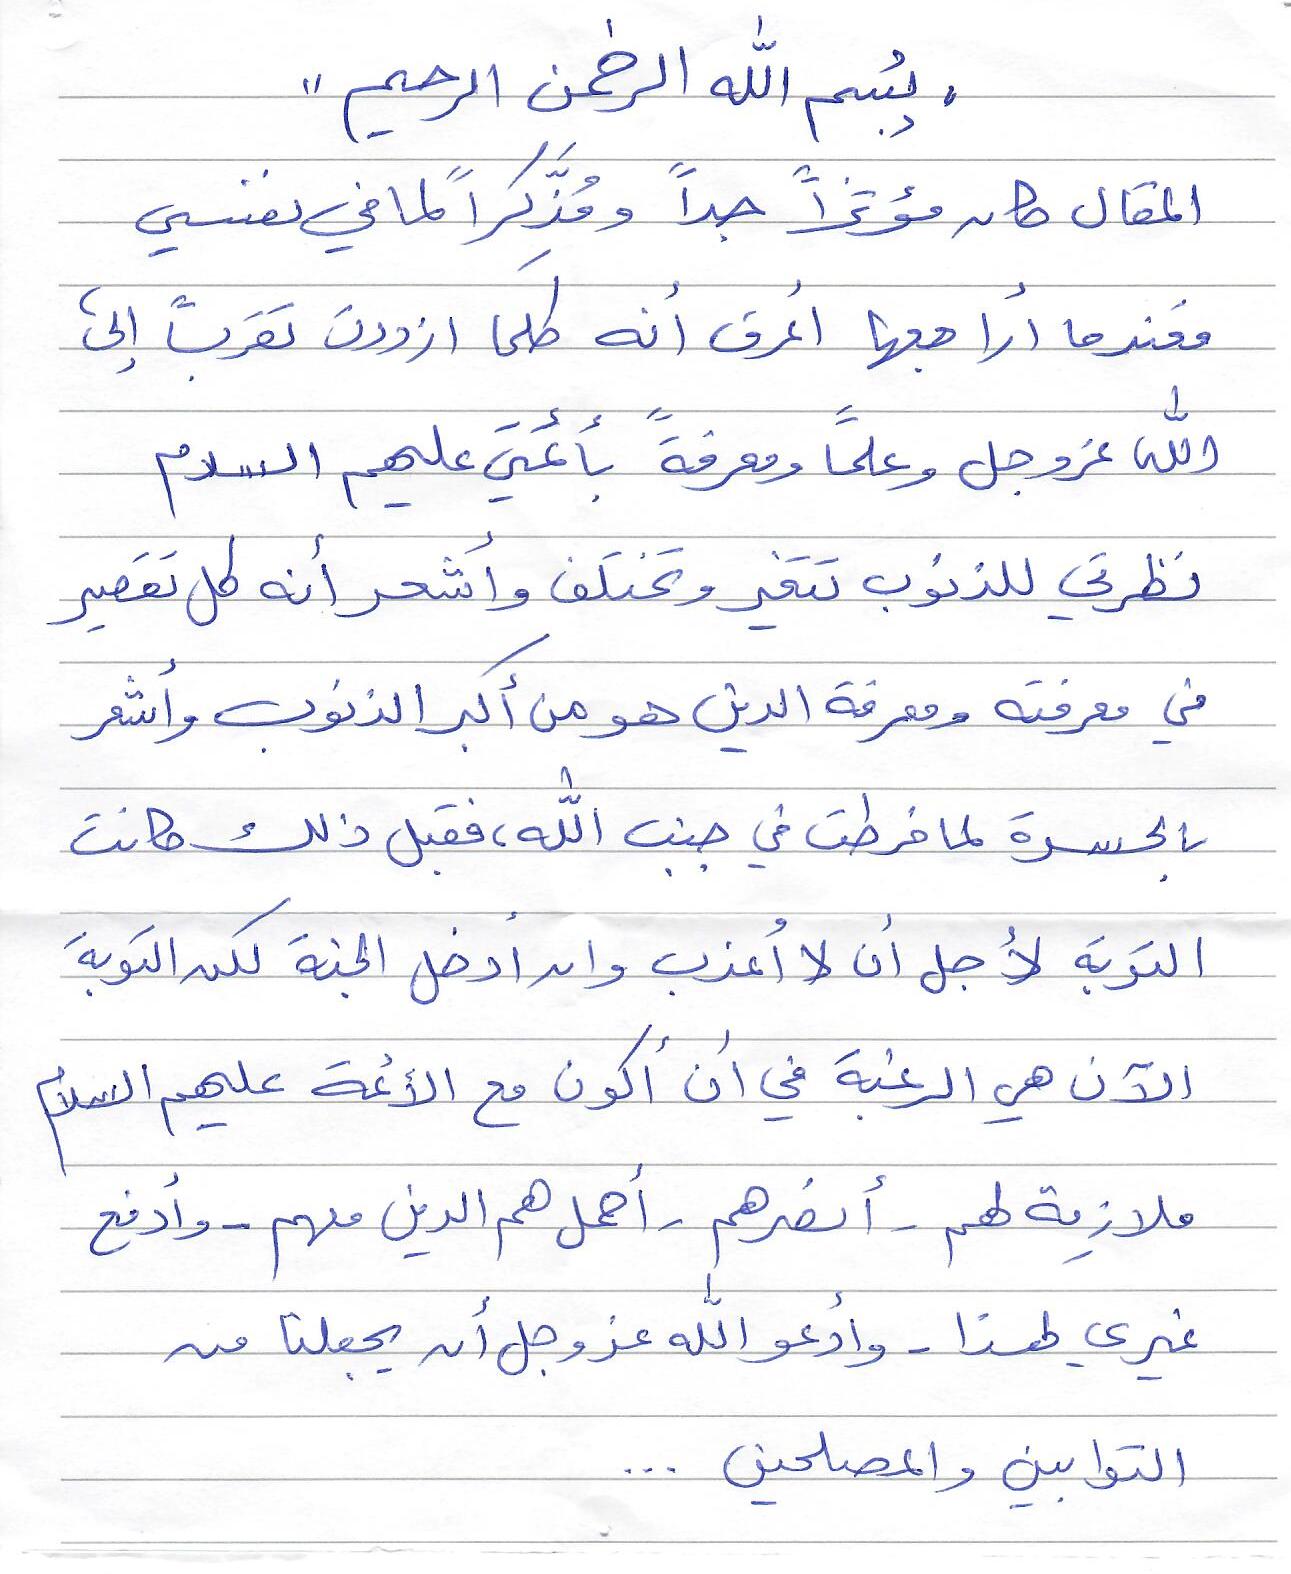 "بِسُم الله الرحمن الرحيم"
المقال كان مؤثراً جداً ومُذَّكِراً لما في نفسي
فعندما أراجعها أعرف أنه كلما ازددت تقرباً إلى
الله عز وجل وعلماً ومعرفةً بأئمتي عليهم السلام
نظرتي للذنوب تتغير وتختلف وأشعر أنه كل تقصير
في معرفته ومعرفة الدين هو من أكبر الذنوب وأشعر
بالحسرة لما فرطت في جنب الله، فقبل ذلك كانت
التوبة لأجل أن لا أعذب وان أدخل الجنة لكن التوبة
الآن هي الرغبة في أن أكون مع الأئمة عليهم السلام
ملازِمة لهم - أنصرهم - أحمل هم الدين معهم - وأدفع
غيري لهذا - وأدعو الله عز وجل أن يجعلنا من
التوابين والمصلحين ...